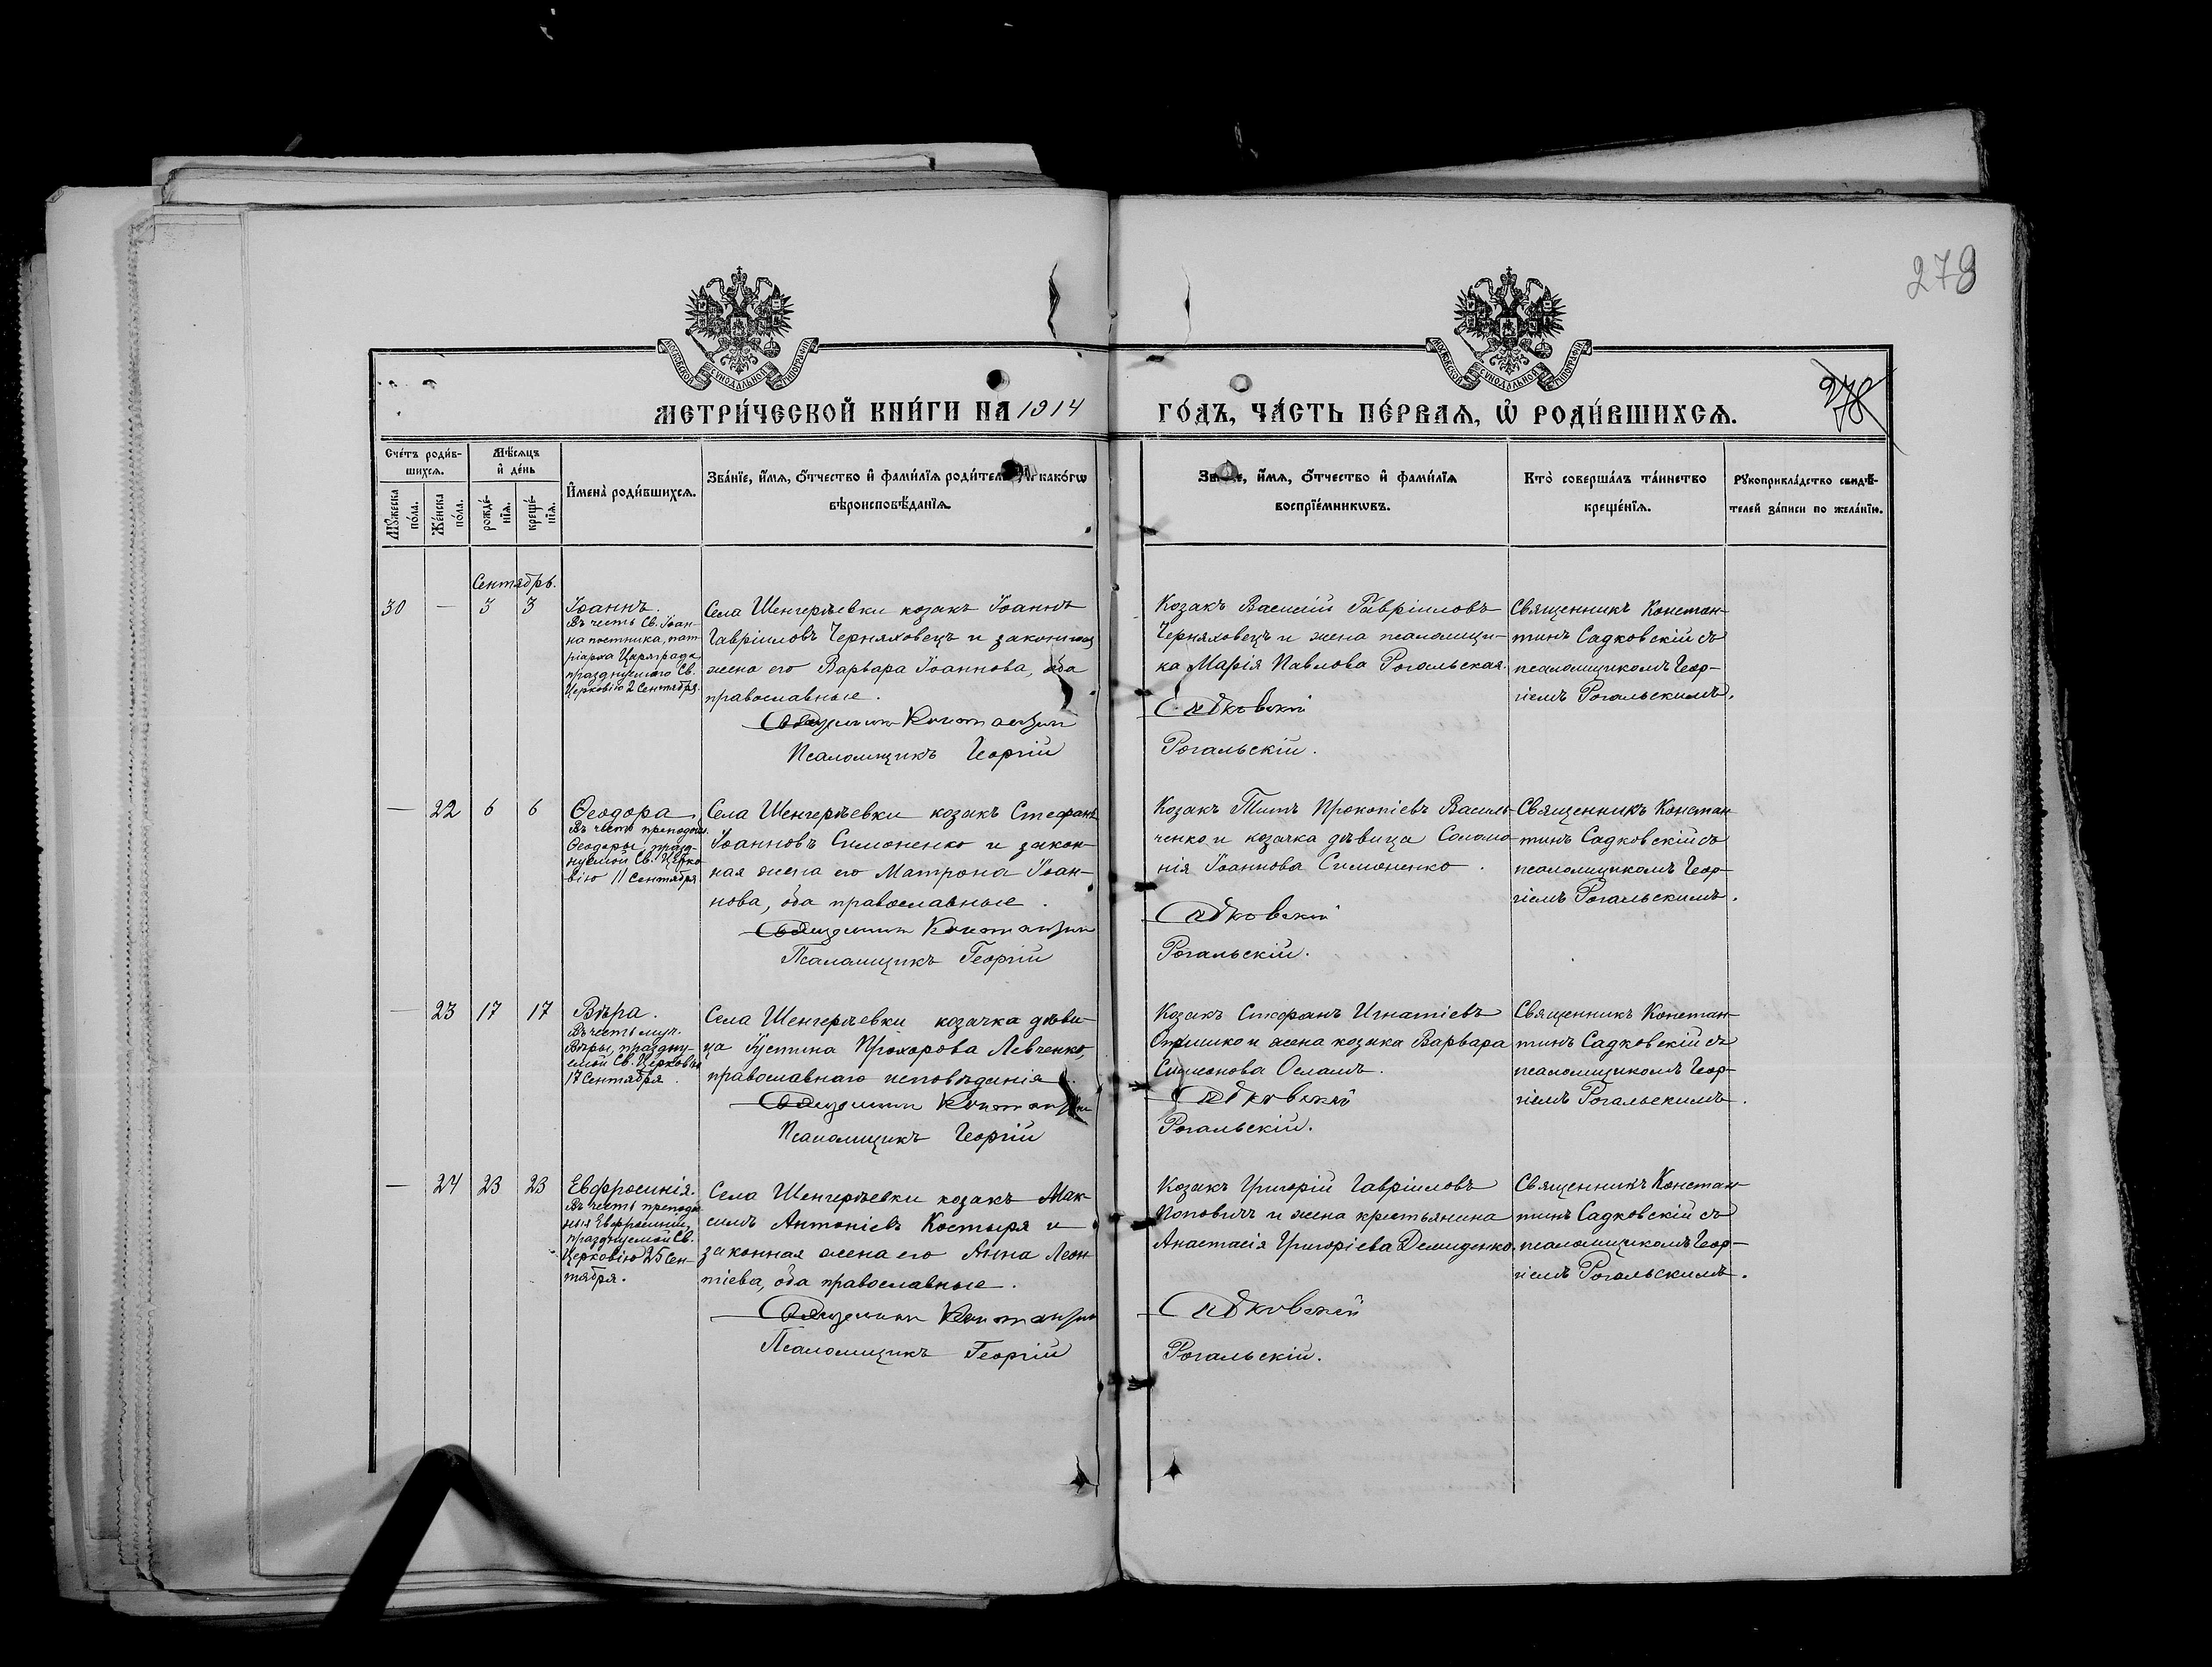 278
МОСКОВСКОЙ СѴНОДАЛЬНОЙ ТИПОГРАФІИ
МОСКОВСКОЙ СѴНОДАЛЬНОЙ ТИПОГРАФІИ
МЕТРИ́ЧЕСКОЙ КНИ́ГИ НА 1914
ГО́ДЪ, ЧА́СТЬ ПЕ́РВАЯ, Ѡ РОДИ́ВШИХСѦ.
278
Сче́тъ роди́в-
шихсѧ.
Мѣ́сѧцъ
и҆ де́нь
Мꙋ́жеска
по́ла.
Же́нска
по́ла.
рожде́-
нїѧ.
креще́-
нїѧ.
И҆мена̀ роди́вшихсѧ.
Зва́нїе, и҆́мѧ, ѻ҆́тчество и҆ фами́лїѧ роди́телей, и҆ како́гѡ
вѣроисповѣ́данїѧ.
Зва́нїе, и҆́мѧ, ѻ҆́тчество и҆ фами́лїѧ
воспрїе́мникѡвъ.
Кто̀ соверша́лъ та́инство
креще́нїѧ.
Рꙋкоприкла́дство свидѣ́-
телей за́писи по жела́нїю.
Сентябрь.
30 — 3 3
Іоаннъ.
Въ честь Св. Іоан-
на постника, пат-
ріарха Цареграда
празднуемаго Св.
Церковію 2 Сентября.
Села Шенгерѣевки козакъ Іоаннъ
Гавріиловъ Черняховецъ и законная
жена его Варвара Іоаннова, оба
православные.
Священникъ Константин
Псаломщикъ Георгій
Козакъ Василій Гавріиловъ
Черняховецъ и жена псаломщи-
ка Марія Павлова Рогальская.
Садковскій
Рогальскій.
Священникъ Констан-
тинъ Садковскій съ
псаломщикомъ Геор-
гіемъ Рогальскимъ.
— 22 6 6
Ѳеодора.
Въ честь преподобн.
Ѳеодоры, празд-
нуемой Св. Церко-
вію 11 Сентября
Села Шенгерѣевки козакъ Стефанъ
Іоанновъ Симоненко и закон-
ная жена его Матрона Іоан-
нова, оба православные.
Священникъ Константин
Псаломщикъ Георгій
Козакъ Титъ Прокопіевъ Василь-
ченко и козачка дѣвица Соломо-
нія Іоаннова Симоненко.
Садковскій
Рогальскій.
Священникъ Констан-
тинъ Садковскій съ
псаломщикомъ Геор-
гіемъ Рогальскимъ.
— 23 17 17
Вѣра.
Въ честь муч.
Вѣры, праздну-
емой Св. Церковію
17 Сентября.
Села Шенгерѣевки козачка дѣви-
ца Іустина Прохорова Левченко,
православнаго исповѣданія.
Священникъ Константин
Псаломщикъ Георгій
Козакъ Стефанъ Игнатіевъ
Опришко и жена козака Варвара
Симонова Осламъ.
Садковскій
Рогальскій.
Священникъ Констан-
тинъ Садковскій съ
псаломщикомъ Геор-
гіемъ Рогальскимъ.
— 24 23 23
Евфросинія.
Въ честь преподоб-
ныя Евфросиніи,
празднуемой Св.
Церковію 25 Сен-
тября.
Села Шенгерѣевки козакъ Мак-
симъ Антоніевъ Костыря и
законная жена его Анна Леон-
тіева, оба православные.
Священникъ Константин
Псаломщикъ Георгій
Козакъ Григорій Гавріиловъ
Поповичъ и жена крестьянина
Анастасія Григоріева Демиденко.
Садковскій
Рогальскій.
Священникъ Констан-
тинъ Садковскій съ
псаломщикомъ Геор-
гіемъ Рогальскимъ.